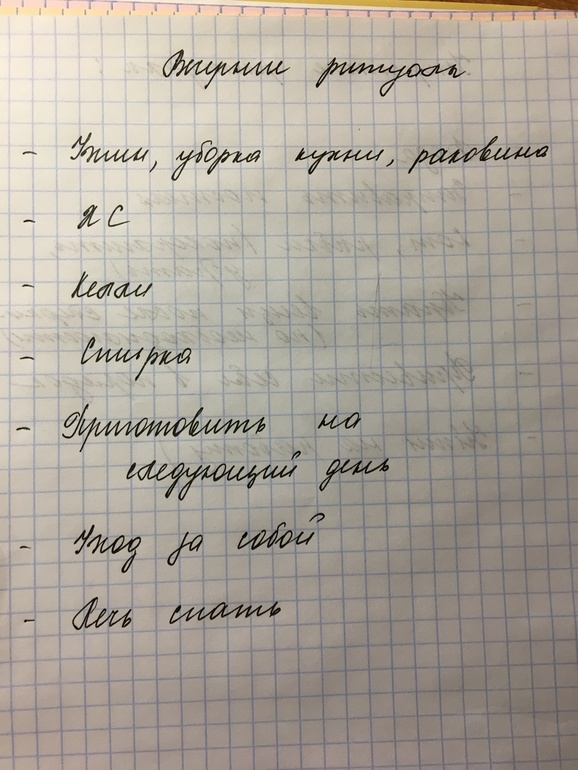 Вечерние ритуалы
- Ужин, уборка кухни, раковина
-
- Келли
- Стирка
- Приготовить на
следующий день
- Уход за собой
- Лечь спать